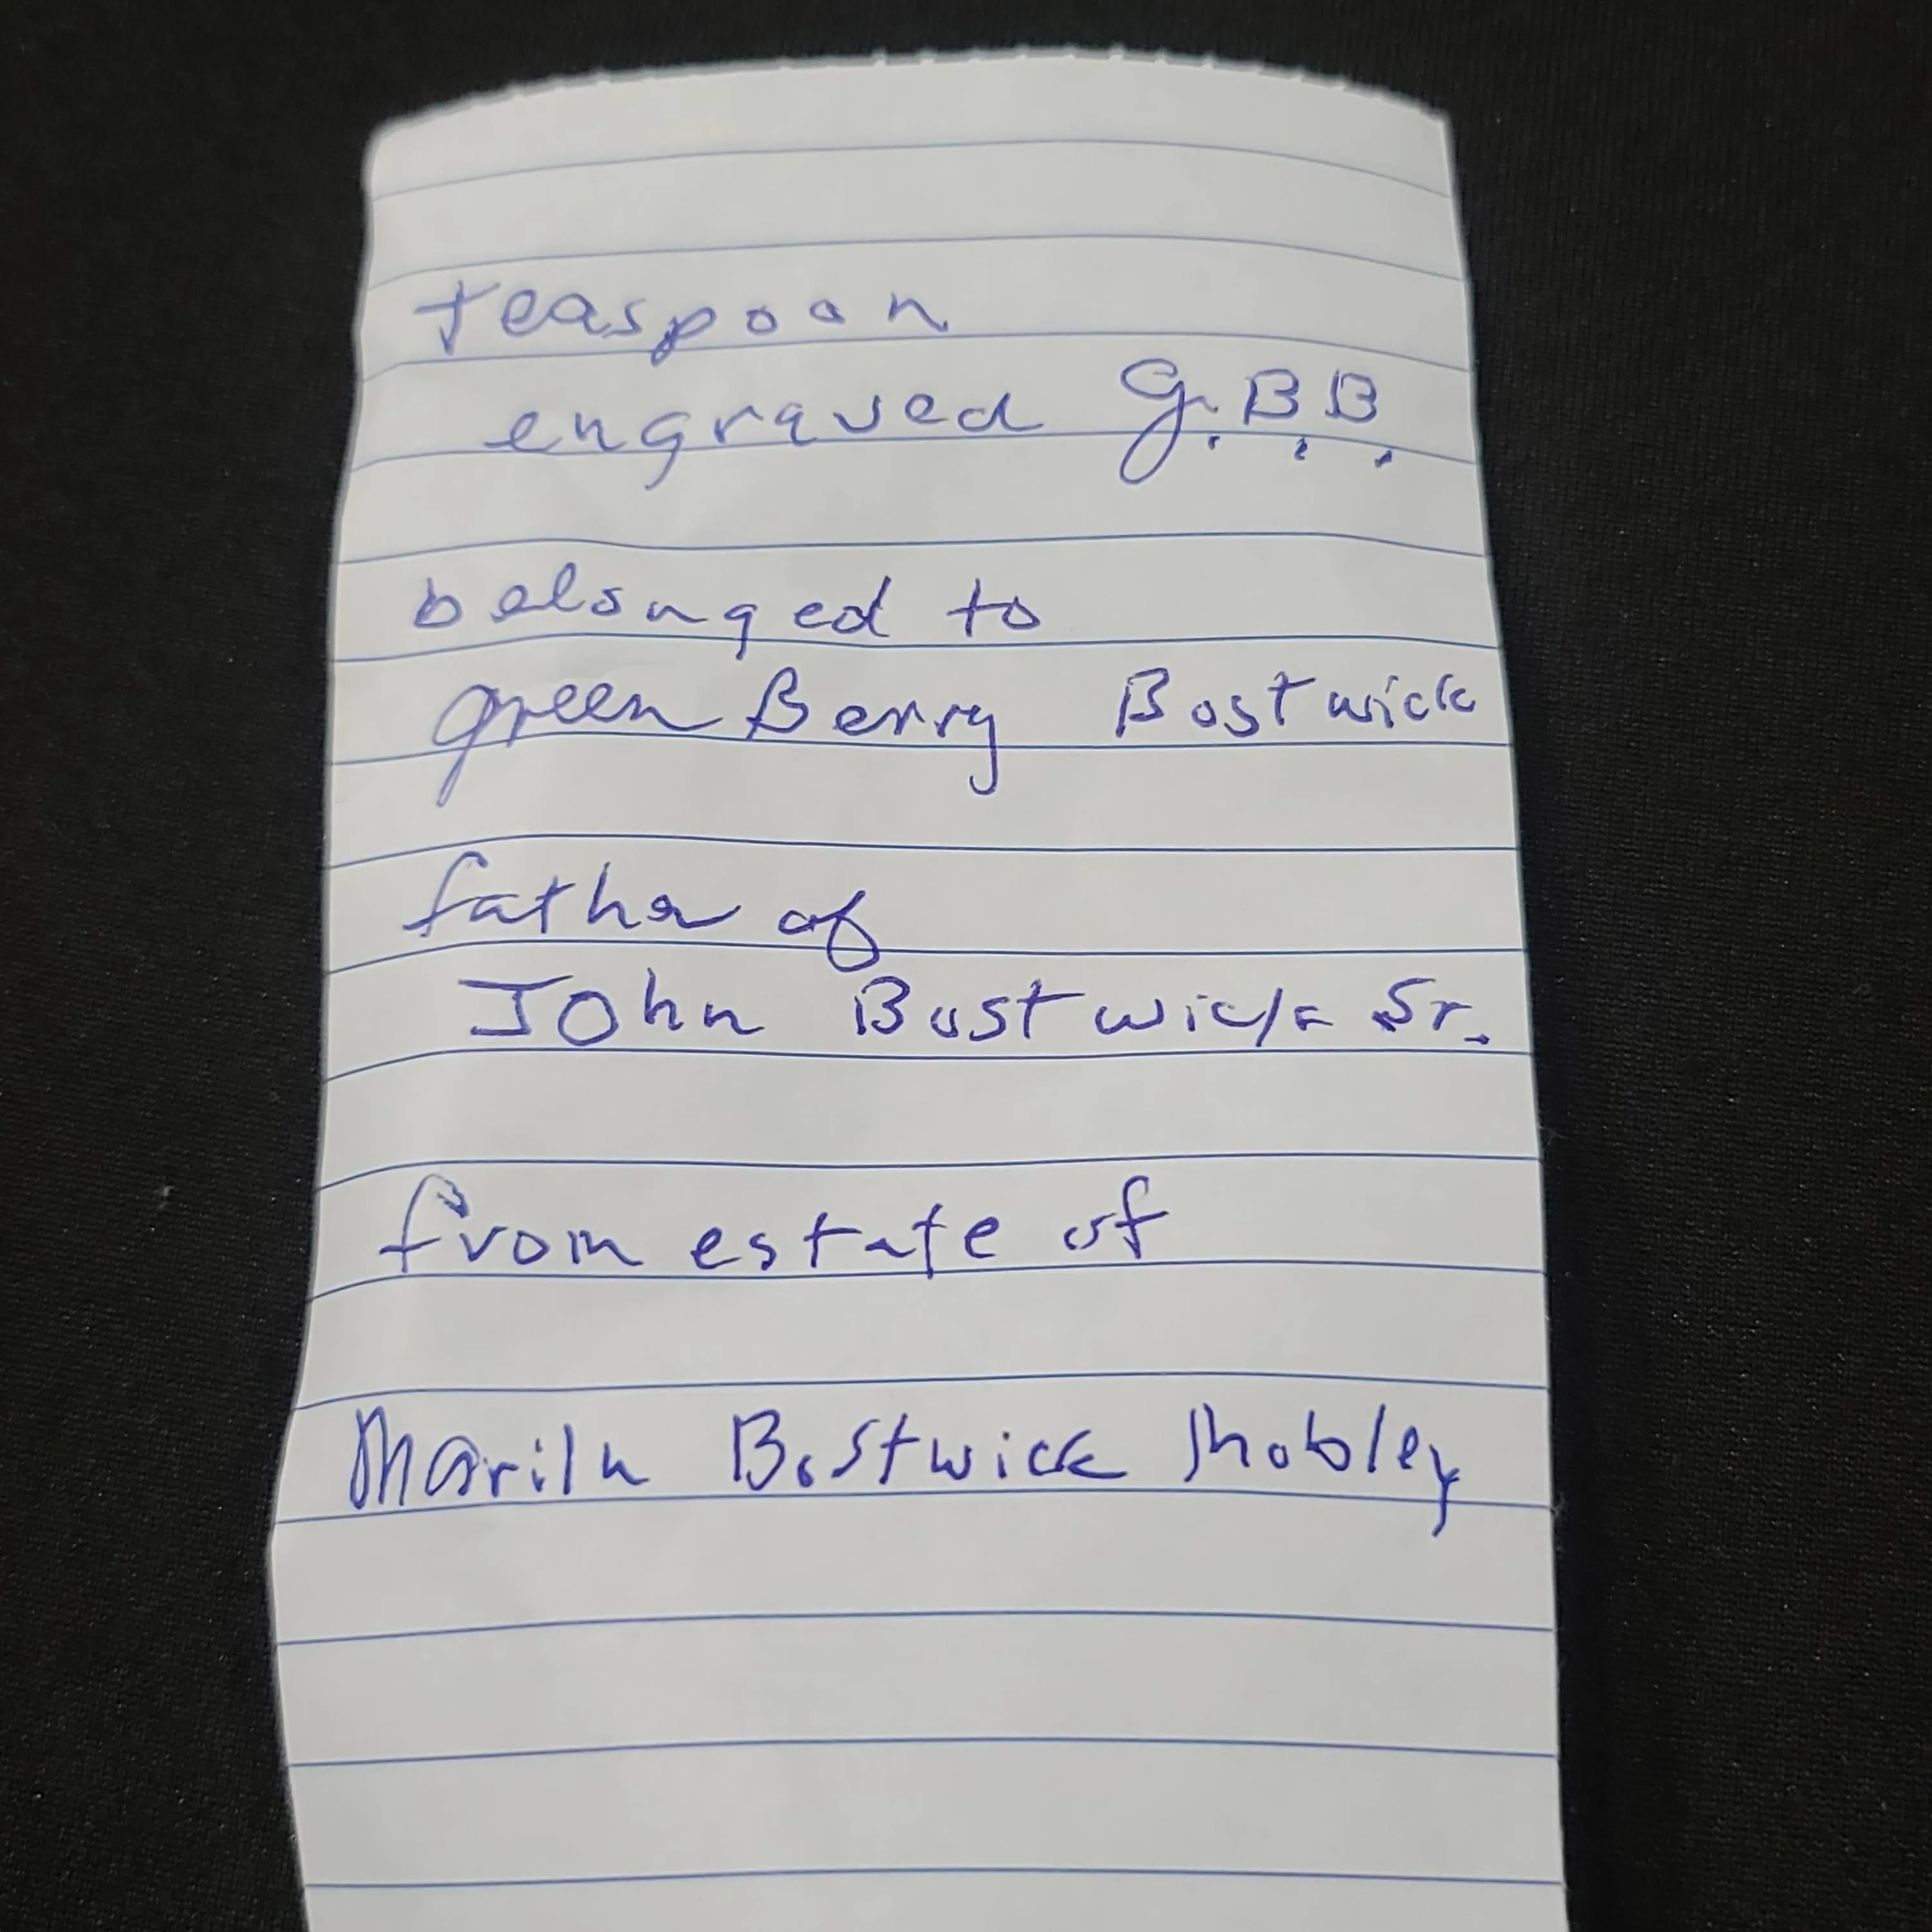 teaspoon
engraved G.B.B.
belonged to
green Berry Bostwick
father of
John Bostwick Sr.
from estate of
Mariln Bostwick Mobley